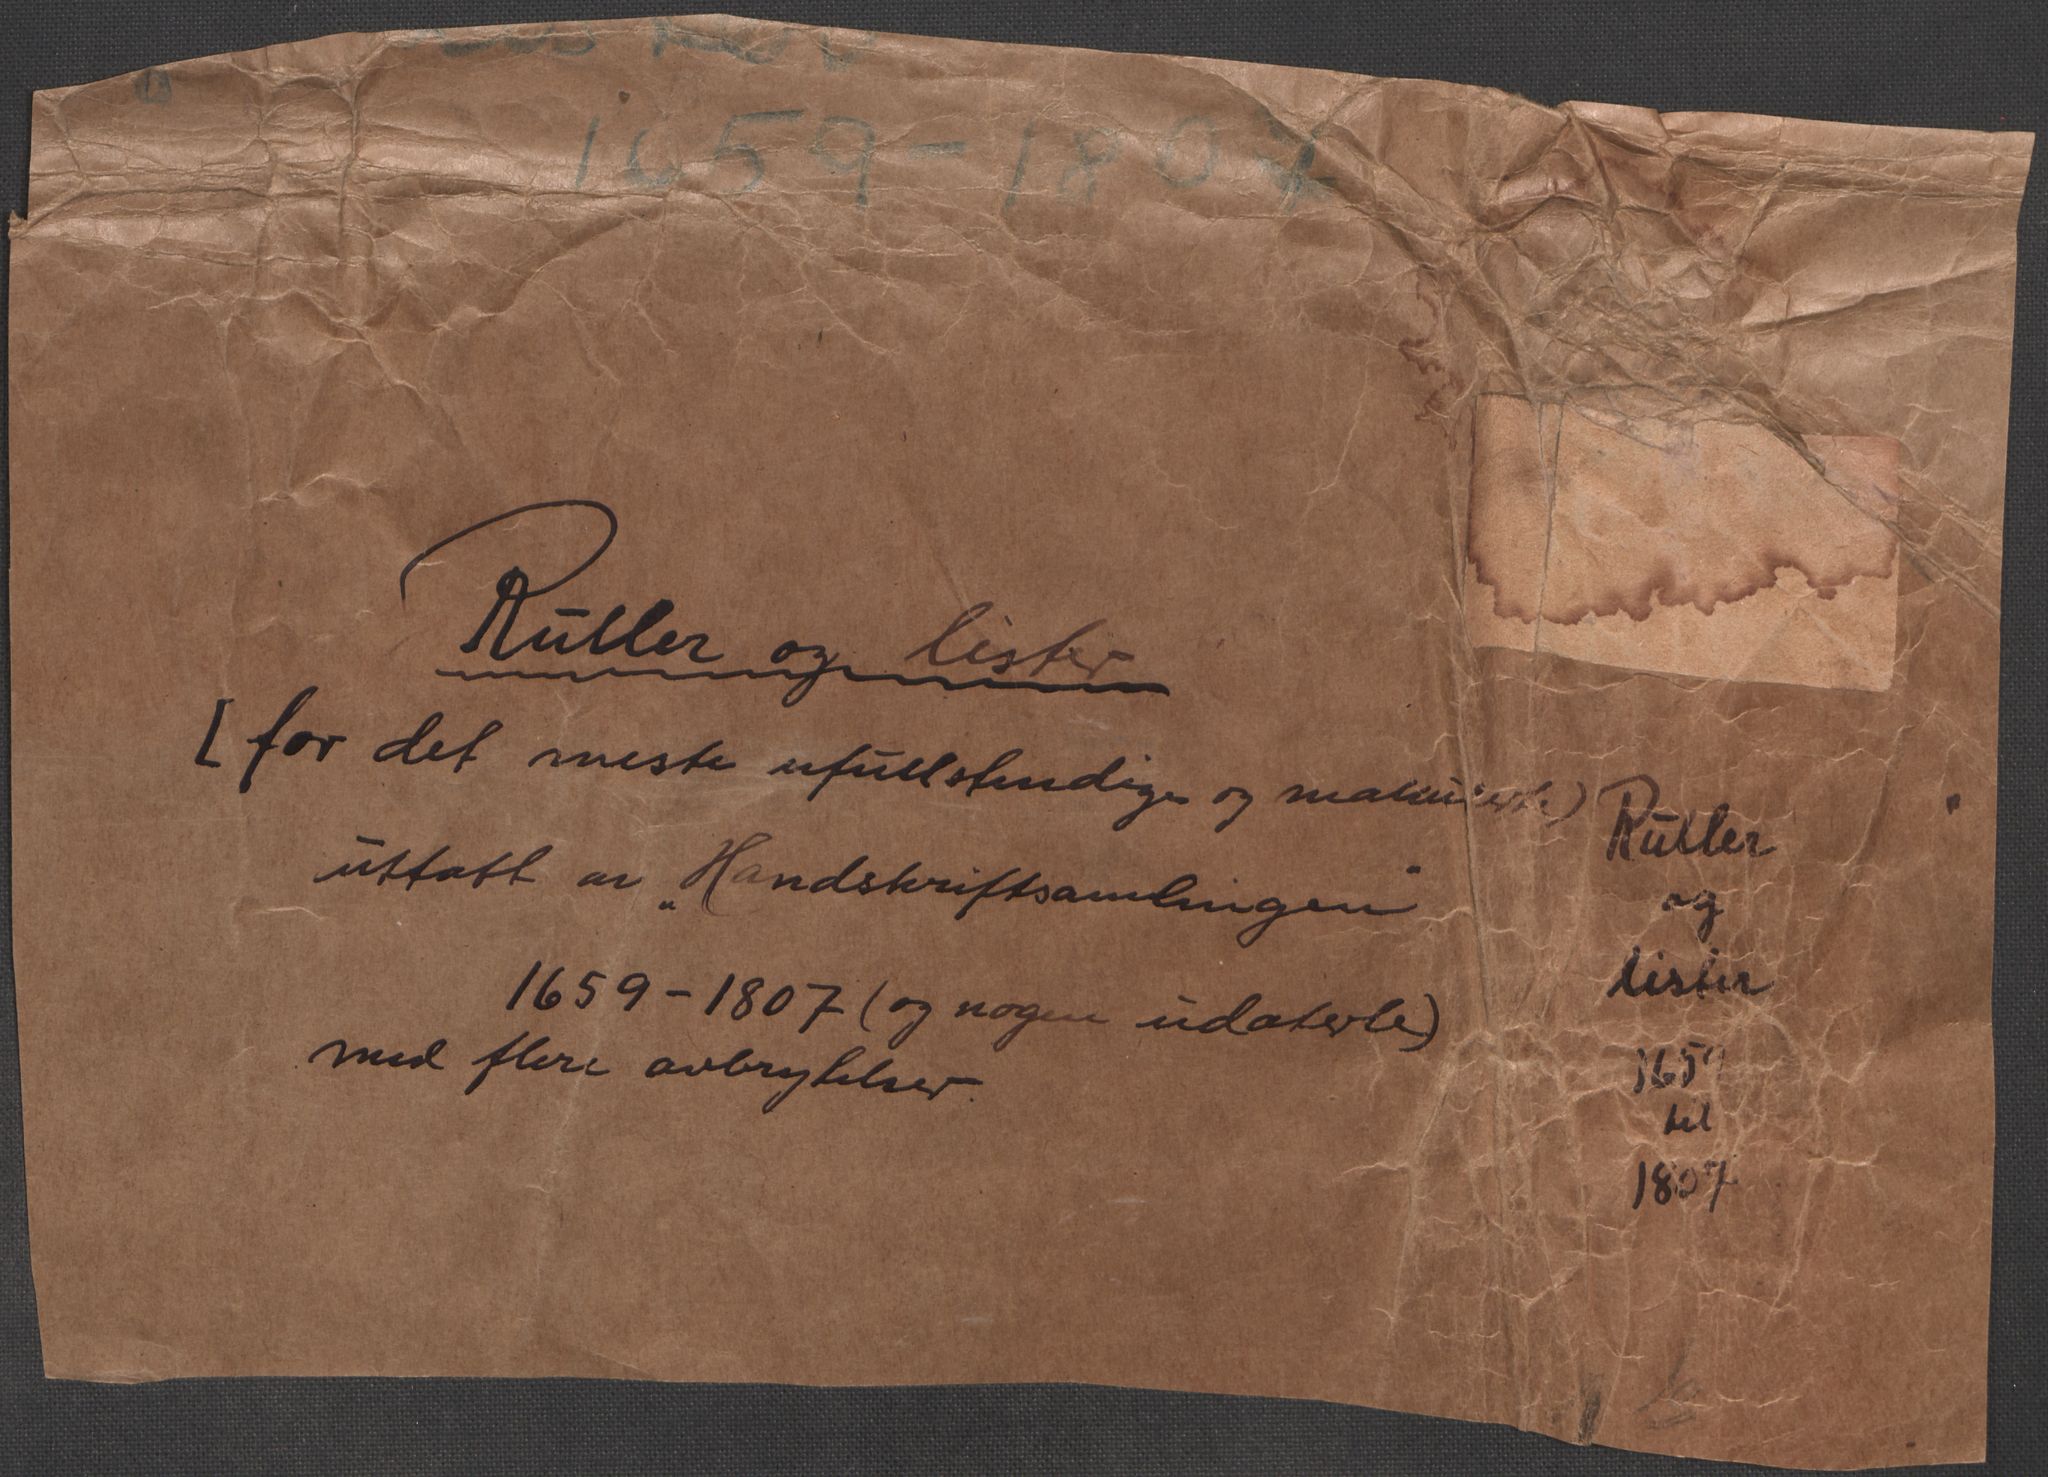 1659-1807
Rŭller og lister
[for det meste ufŭllstendige og makŭlerte)
ŭttatt av „Handskriftsamlingen"
1659-1807 (og nogen ŭdaterte)
med flere avbrytelser.
Rŭller
og
lister
1659
til
1807